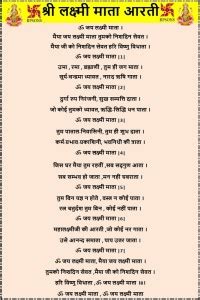 श्री लक्ष्मी माता आरती
ॐ जय लक्ष्मी माता ।
मैया जय लक्ष्मी माता तुमको निशदिन सेवत ।
मैया जी को निशदिन सेवत हरि विष्णु विधाता ।
ॐ जय लक्ष्मी माता [1]
उमा , रमा , ब्रह्माणी , तुम ही जग माता ।
सूर्य चन्द्रमा ध्यावत , नारद ऋषि गाता ।
ॐ जय लक्ष्मी माता [2]
दुर्गा रुप निरंजनी, सुख सम्पत्ति दाता ।
जो कोई तुमको ध्यावत, ऋद्धि-सिद्धि धन पाता ।
ॐ जय लक्ष्मी माता [3]
तुम पाताल-निवासिनी, तुम ही शुभ दाता ।
कर्म-प्रभाव-प्रकाशिनी, भवनिधी की त्राता ।
ॐ जय लक्ष्मी माता [4]
जिस घर मैया तुम रहती ,सब सद्गुण आता ।
सब सम्भव हो जाता ,मन नही घबराता ।
ॐ जय लक्ष्मी माता [5]
तुम बिन यज्ञ न होते , वस्त्र न कोई पाता ।
रत्न चतुर्दश तुम बिन , कोई नहीं पाता ।
ॐ जय लक्ष्मी माता [6]
महालक्ष्मीजी की आरती ,जो कोई नर गाता ।
उर्से आनन्द समाता , पाप उतर जाता ।
ॐ जय लक्ष्मी माता [7]
ॐ जय लक्ष्मी माता, मैया जय लक्ष्मी माता ।
तुमको निशदिन सेवत ,मैया जी को निशदिन सेवत ।
हरि विष्णु विधाता , ॐ जय लक्ष्मी माता [8]
ॐ जय लक्ष्मी माता , ॐ जय लक्ष्मी माता